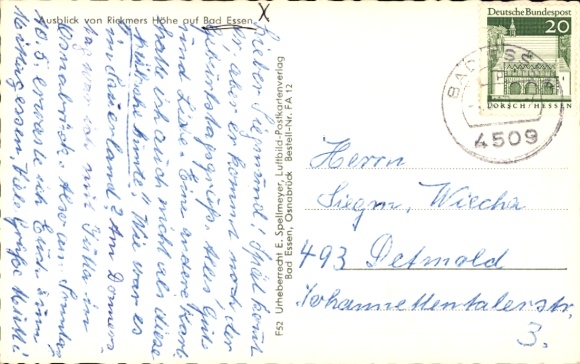 Ausblick von Rickmers Höhe auf Bad Essen
Lieber Siegmund! Spät kommt
er, aber er kommt noch, der
Geburtstagsgruß. Alles Gute
und Liebe. Eine andere Karte
hatte ich auch nicht als diese
Wie war es
in ? Am Donners
tag war ich mit Jutta in
Osnabrück. Also am Sonntag
erwarte ich Euch zum
Mittagessen. Viele Grüße
F52 Urheberrecht E. Spellmeyer, Luftbild-Postkartenverlag
Bad Essen, Osnabrück Bestell-Nr. FA 12
Deutsche Bundespost
20
LORSCH/HESSEN
BAD ESSEN
4509
Herrn
Siegm. Wiecha
493 Detmold
Johannettentalerstr.
3.